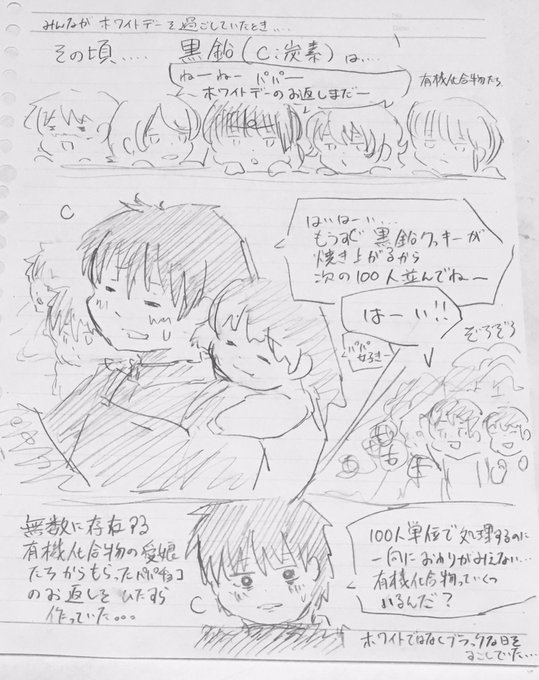 みんなが ホワイトデーを過ごしていたとき...
その頃.... 黒鉛(C:炭素)は...
ねーねー パパー
ホワイトデーのお返しまだー
有機化合物たち
C
はいはーい...
もうすぐ 黒鉛クッキーが
焼き上がるから
次の100人並んでねー
はーい!!
パパ
好きー
ぞろぞろ
無数に存在する
有機化合物の愛娘
たちからもらったパパチョコ
のお返しを ひたすら
作っていた...
C
100人単位で処理するのに
一向におわりがみえない...
有機化合物っていくつ
いるんだ?
ホワイトではなくブラックな日を
すごしていた...